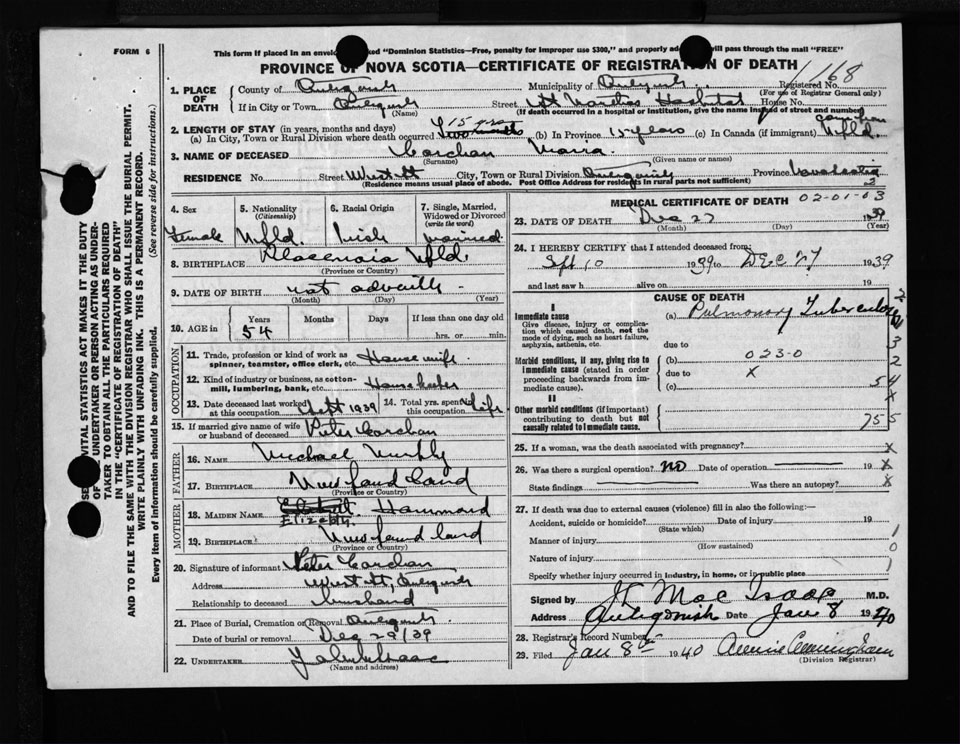 FORM 6
This form if placed in an envelope marked "Dominion Statistics—Free, penalty for improper use $300," and properly addressed will pass through the mail "FREE"
PROVINCE OF NOVA SCOTIA—CERTIFICATE OF REGISTRATION OF DEATH
1168
1. PLACE OF DEATH County of Antigonish Municipality of Antigonish Registered No.
(For use of Registrar General only)
If in City or Town Antigonish Street St Marthas Hospital House No.
(Name) (If death occurred in a hospital or institution, give the name instead of street and number)
2. LENGTH OF STAY (in years, months and days) 15 yrs came from
(a) In City, Town or Rural Division where death occurred (b) In Province 15 years (c) In Canada (if immigrant) Nfld.
3. NAME OF DECEASED Corchan Maria
(Surname) (Given name or names)
RESIDENCE No. Street West St City, Town or Rural Division Antigonish Province Nova Scotia
(Residence means usual place of abode. Post Office Address for residents in rural parts not sufficient)
4. Sex 5. Nationality (Citizenship) 6. Racial Origin 7. Single, Married, Widowed or Divorced (write the word)
Female Nfld. Irish married
8. BIRTHPLACE Placentia Nfld
(Province or Country)
9. DATE OF BIRTH not
(Month) (Day) (Year)
10. AGE in Years Months Days If less than one day old
54 hrs. or min.
OCCUPATION
11. Trade, profession or kind of work as spinner, teamster, office clerk, etc. Housewife
12. Kind of industry or business, as cotton-mill, lumbering, bank, etc. Housekeeper
13. Date deceased last worked at this occupation Sept 1939 14. Total yrs. spent in this occupation Life
15. If married give name of wife or husband of deceased Peter Corchan
FATHER
16. NAME Michael Murphy
17. BIRTHPLACE Newfoundland
(Province or Country)
MOTHER
18. MAIDEN NAME Elizabth Hammond
19. BIRTHPLACE Newfoundland
(Province or Country)
20. Signature of informant Peter Corchan
Address West St, Antigonish
Relationship to deceased husband
21. Place of Burial, Cremation or Removal Antigonish
Date of burial or removal Dec 29/39
22. UNDERTAKER
(Name and address)
MEDICAL CERTIFICATE OF DEATH 02-01-03
23. DATE OF DEATH Dec 27 1939
(Month) (Day) (Year)
24. I HEREBY CERTIFY that I attended deceased from:
Sept 10 1939 to DEC 27 1939
and last saw h alive on 19
CAUSE OF DEATH
I
Immediate cause (a) Pulmonary Tuberculosis
Give disease, injury or complication which caused death, not the mode of dying, such as heart failure, asphyxia, asthenia, etc.
due to
Morbid conditions, if any, giving rise to immediate cause (stated in order proceeding backwards from immediate cause).
(b) 023-0
due to X
(c) 54
II
Other morbid conditions (if important) contributing to death but not causally related to immediate cause.
755
25. If a woman, was the death associated with pregnancy? X
26. Was there a surgical operation? NO Date of operation 19 X
State findings Was there an autopsy? 8
27. If death was due to external causes (violence) fill in also the following:—
Accident, suicide or homicide? Date of injury 19
(State which)
Manner of injury 1
(How sustained) 0
Nature of injury 1
Specify whether injury occurred in industry, in home, or in public place
Signed by Mac Isaac M.D.
Address Antigonish Date Jan 8 1940
28. Registrar's Record Number
29. Filed Jan 8th 1940 Annie Cunningham
(Division Registrar)
VITAL STATISTICS ACT MAKES IT THE DUTY
OF UNDERTAKER OR PERSON ACTING AS UNDER-
TAKER TO OBTAIN ALL THE PARTICULARS REQUIRED
IN THE "CERTIFICATE OF REGISTRATION OF DEATH"
AND TO FILE THE SAME WITH THE DIVISION REGISTRAR WHO SHALL ISSUE THE BURIAL PERMIT.
WRITE PLAINLY WITH UNFADING INK. THIS IS A PERMANENT RECORD.
Every item of information should be carefully supplied. (See reverse side for instructions.)